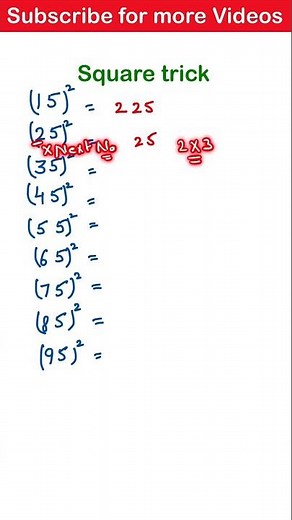 Subscribe for more Videos
Square trick
(15)² = 225
(25)² = 25 2×3
× Next No
(35)² =
(45)² =
(55)² =
(65)² =
(75)² =
(85)² =
(95)² =